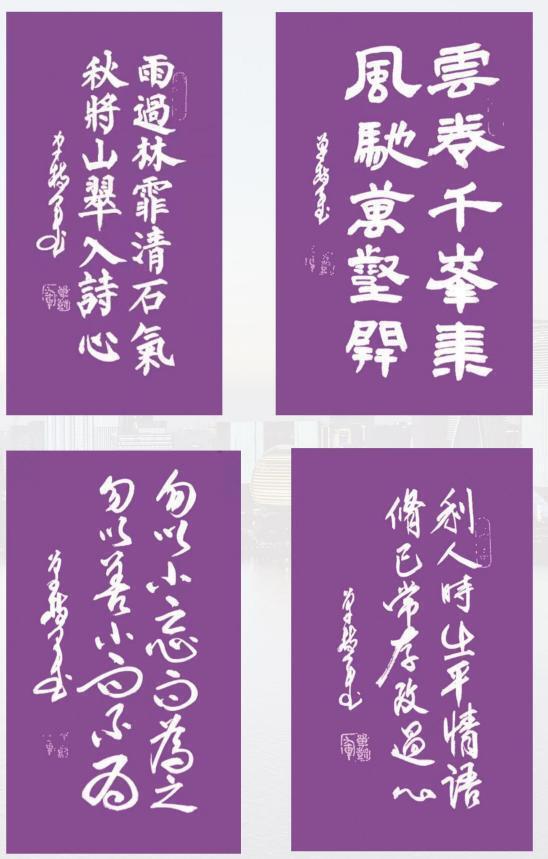 雨過林霏清石氣
秋將山翠入詩心
雲卷千峯集
風馳萬壑開
勿以小惡而為之
勿以善小而不為
利人時出平情語
脩己常存改過心